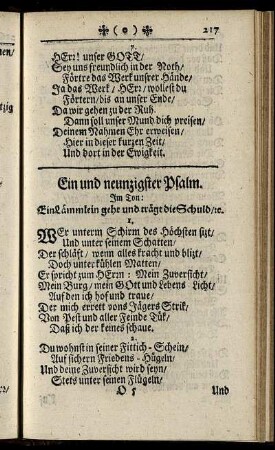 (0) 217
7.
HErr! unser GOTT/
Sey uns freundlich in der Noth/
Förtre das Werk unsrer Hände/
Ja das Werk/ HErr/ wollest du
Förtern/ bis an unser Ende/
Da wir gehen zu der Ruh.
Dann soll unser Mund dich preisen/
Deinem Nahmen Ehr erweisen/
Hier in dieser kurzen Zeit/
Und dort in der Ewigkeit.
Ein und neunzigster Psalm.
Im Ton:
Ein Lämmlein gehe und trägt die Schuld/ꝛc.
1.
WEr unterm Schirm des Höchsten sizt/
Und unter seinem Schatten/
Der schläft/ wenn alles kracht und blizt/
Doch unter kühlen Matten/
Er spricht zum HErrn: Mein Zuversicht/
Mein Burg/ mein GOtt und Lebens-Licht/
Auf den ich hof und traue/
Der mich errett vons Jägers Strik/
Von Pest und aller Feinde Tük/
Daß ich der keines schaue.
2.
Du wohnst in seiner Fittich-Schein/
Auf sichern Friedens-Hügeln/
Und deine Zuversicht wird seyn/
Stets unter seinen Flügeln/
O 5 Und